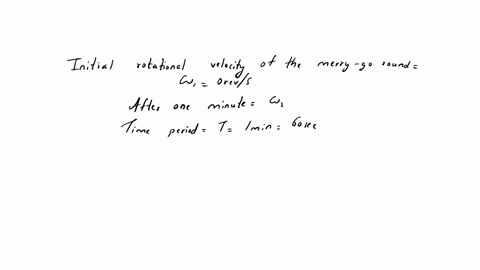 Initial rotational velocity of the merry-go round =
ω₁ = 0 rev/s
After one minute = ω₂
Time period = T = 1min = 60sec